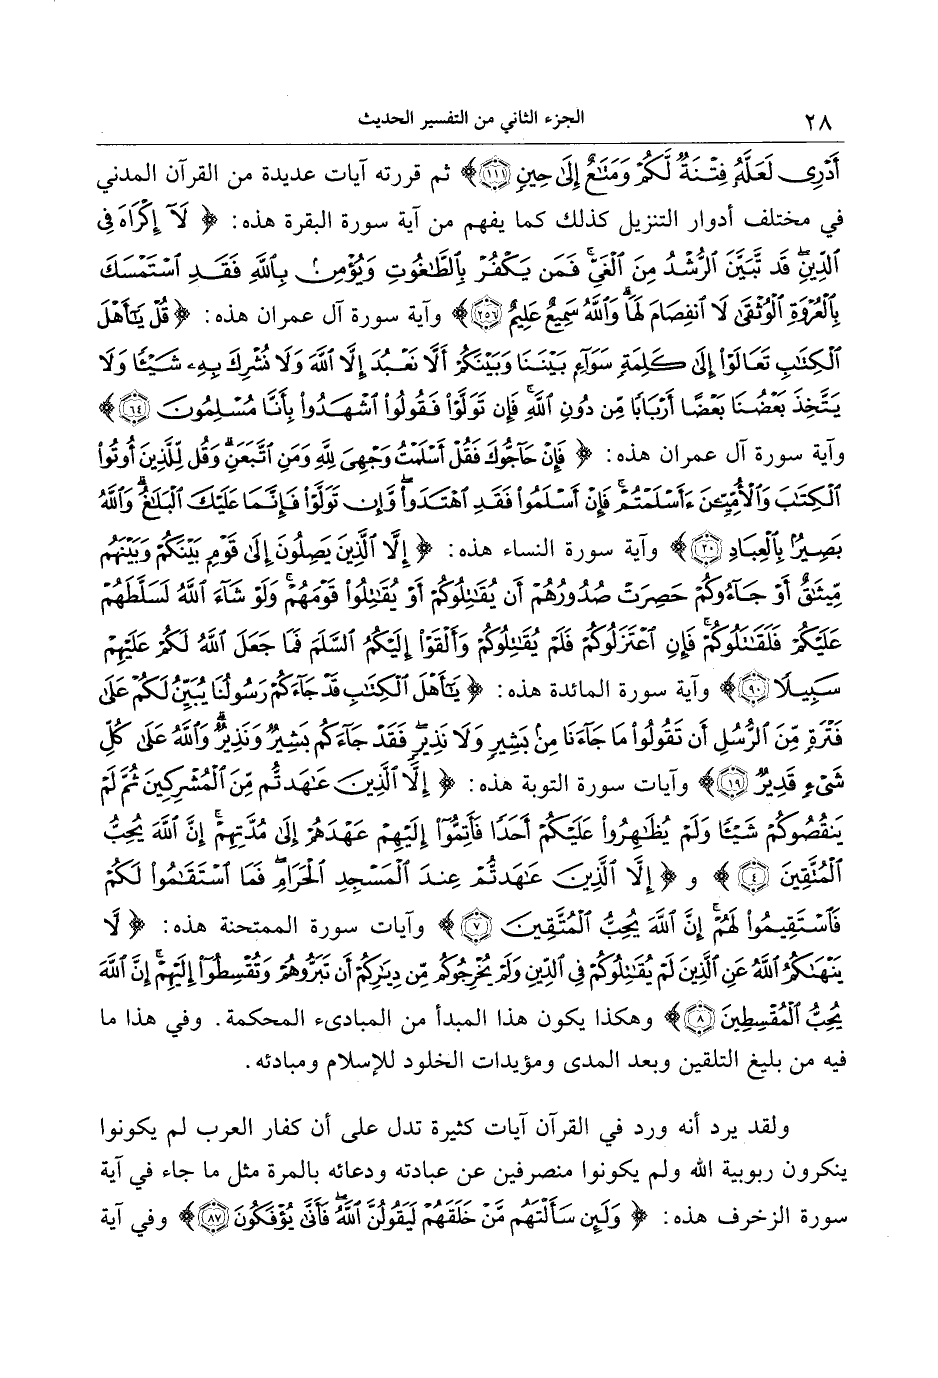 ٢٨ الجزء الثاني من التفسير الحديث
أَدْرِي لَعَلَّهُ فِتْنَةٌ لَّكُمْ وَمَتَاعٌ إِلَىٰ حِينٍ (١١١)﴾ ثم قررته آيات عديدة من القرآن المدني
في مختلف أدوار التنزيل كذلك كما يفهم من آية سورة البقرة هذه: ﴿لَآ إِكْرَاهَ فِي
الدِّينِ قَد تَّبَيَّنَ الرُّشْدُ مِنَ الْغَيِّ فَمَن يَكْفُرْ بِالطَّاغُوتِ وَيُؤْمِنۢ بِاللَّهِ فَقَدِ اسْتَمْسَكَ
بِالْعُرْوَةِ الْوُثْقَىٰ لَا انفِصَامَ لَهَا وَاللَّهُ سَمِيعٌ عَلِيمٌ (٢٥٦)﴾ وآية سورة آل عمران هذه: ﴿قُلْ يَٰٓأَهْلَ
الْكِتَٰبِ تَعَالَوْا إِلَىٰ كَلِمَةٍ سَوَآءٍ بَيْنَنَا وَبَيْنَكُمْ أَلَّا نَعْبُدَ إِلَّا اللَّهَ وَلَا نُشْرِكَ بِهِۦ شَيْـًٔا وَلَا
يَتَّخِذَ بَعْضُنَا بَعْضًا أَرْبَابًا مِّن دُونِ اللَّهِ فَإِن تَوَلَّوْا فَقُولُوا اشْهَدُوا بِأَنَّا مُسْلِمُونَ (٦٤)﴾
وآية سورة آل عمران هذه: ﴿فَإِنْ حَآجُّوكَ فَقُلْ أَسْلَمْتُ وَجْهِيَ لِلَّهِ وَمَنِ اتَّبَعَنِ وَقُل لِّلَّذِينَ أُوتُوا
الْكِتَٰبَ وَالْأُمِّيِّـۧنَ ءَأَسْلَمْتُمْ فَإِنْ أَسْلَمُوا فَقَدِ اهْتَدَوا وَّإِن تَوَلَّوْا فَإِنَّمَا عَلَيْكَ الْبَلَٰغُ وَاللَّهُ
بَصِيرٌۢ بِالْعِبَادِ (٢٠)﴾ وآية سورة النساء هذه: ﴿إِلَّا الَّذِينَ يَصِلُونَ إِلَىٰ قَوْمٍۭ بَيْنَكُمْ وَبَيْنَهُم
مِّيثَٰقٌ أَوْ جَآءُوكُمْ حَصِرَتْ صُدُورُهُمْ أَن يُقَٰتِلُوكُمْ أَوْ يُقَٰتِلُوا قَوْمَهُمْ وَلَوْ شَآءَ اللَّهُ لَسَلَّطَهُمْ
عَلَيْكُمْ فَلَقَٰتَلُوكُمْ فَإِنِ اعْتَزَلُوكُمْ فَلَمْ يُقَٰتِلُوكُمْ وَأَلْقَوْا إِلَيْكُمُ السَّلَمَ فَمَا جَعَلَ اللَّهُ لَكُمْ عَلَيْهِمْ
سَبِيلًا (٩٠)﴾ وآية سورة المائدة هذه: ﴿يَٰٓأَهْلَ الْكِتَٰبِ قَدْ جَآءَكُمْ رَسُولُنَا يُبَيِّنُ لَكُمْ عَلَىٰ
فَتْرَةٍ مِّنَ الرُّسُلِ أَن تَقُولُوا مَا جَآءَنَا مِنۢ بَشِيرٍ وَلَا نَذِيرٍ فَقَدْ جَآءَكُم بَشِيرٌ وَنَذِيرٌ وَاللَّهُ عَلَىٰ كُلِّ
شَيْءٍ قَدِيرٌ (١٩)﴾ وآيات سورة التوبة هذه: ﴿إِلَّا الَّذِينَ عَٰهَدتُّم مِّنَ الْمُشْرِكِينَ ثُمَّ لَمْ
يَنقُصُوكُمْ شَيْـًٔا وَلَمْ يُظَٰهِرُوا عَلَيْكُمْ أَحَدًا فَأَتِمُّوٓا إِلَيْهِمْ عَهْدَهُمْ إِلَىٰ مُدَّتِهِمْ إِنَّ اللَّهَ يُحِبُّ
الْمُتَّقِينَ (٤)﴾ و ﴿إِلَّا الَّذِينَ عَٰهَدتُّمْ عِندَ الْمَسْجِدِ الْحَرَامِ فَمَا اسْتَقَٰمُوا لَكُمْ
فَاسْتَقِيمُوا لَهُمْ إِنَّ اللَّهَ يُحِبُّ الْمُتَّقِينَ (٧)﴾ وآيات سورة الممتحنة هذه: ﴿لَّا
يَنْهَىٰكُمُ اللَّهُ عَنِ الَّذِينَ لَمْ يُقَٰتِلُوكُمْ فِي الدِّينِ وَلَمْ يُخْرِجُوكُم مِّن دِيَٰرِكُمْ أَن تَبَرُّوهُمْ وَتُقْسِطُوٓا إِلَيْهِمْ إِنَّ اللَّهَ
يُحِبُّ الْمُقْسِطِينَ (٨)﴾ وهكذا يكون هذا المبدأ من المبادىء المحكمة. وفي هذا ما
فيه من بليغ التلقين وبعد المدى ومؤيدات الخلود للإسلام ومبادئه.
ولقد يرد أنه ورد في القرآن آيات كثيرة تدل على أن كفار العرب لم يكونوا
ينكرون ربوبية الله ولم يكونوا منصرفين عن عبادته ودعائه بالمرة مثل ما جاء في آية
سورة الزخرف هذه: ﴿وَلَئِن سَأَلْتَهُم مَّنْ خَلَقَهُمْ لَيَقُولُنَّ اللَّهُ فَأَنَّىٰ يُؤْفَكُونَ (٨٧)﴾ وفي آية